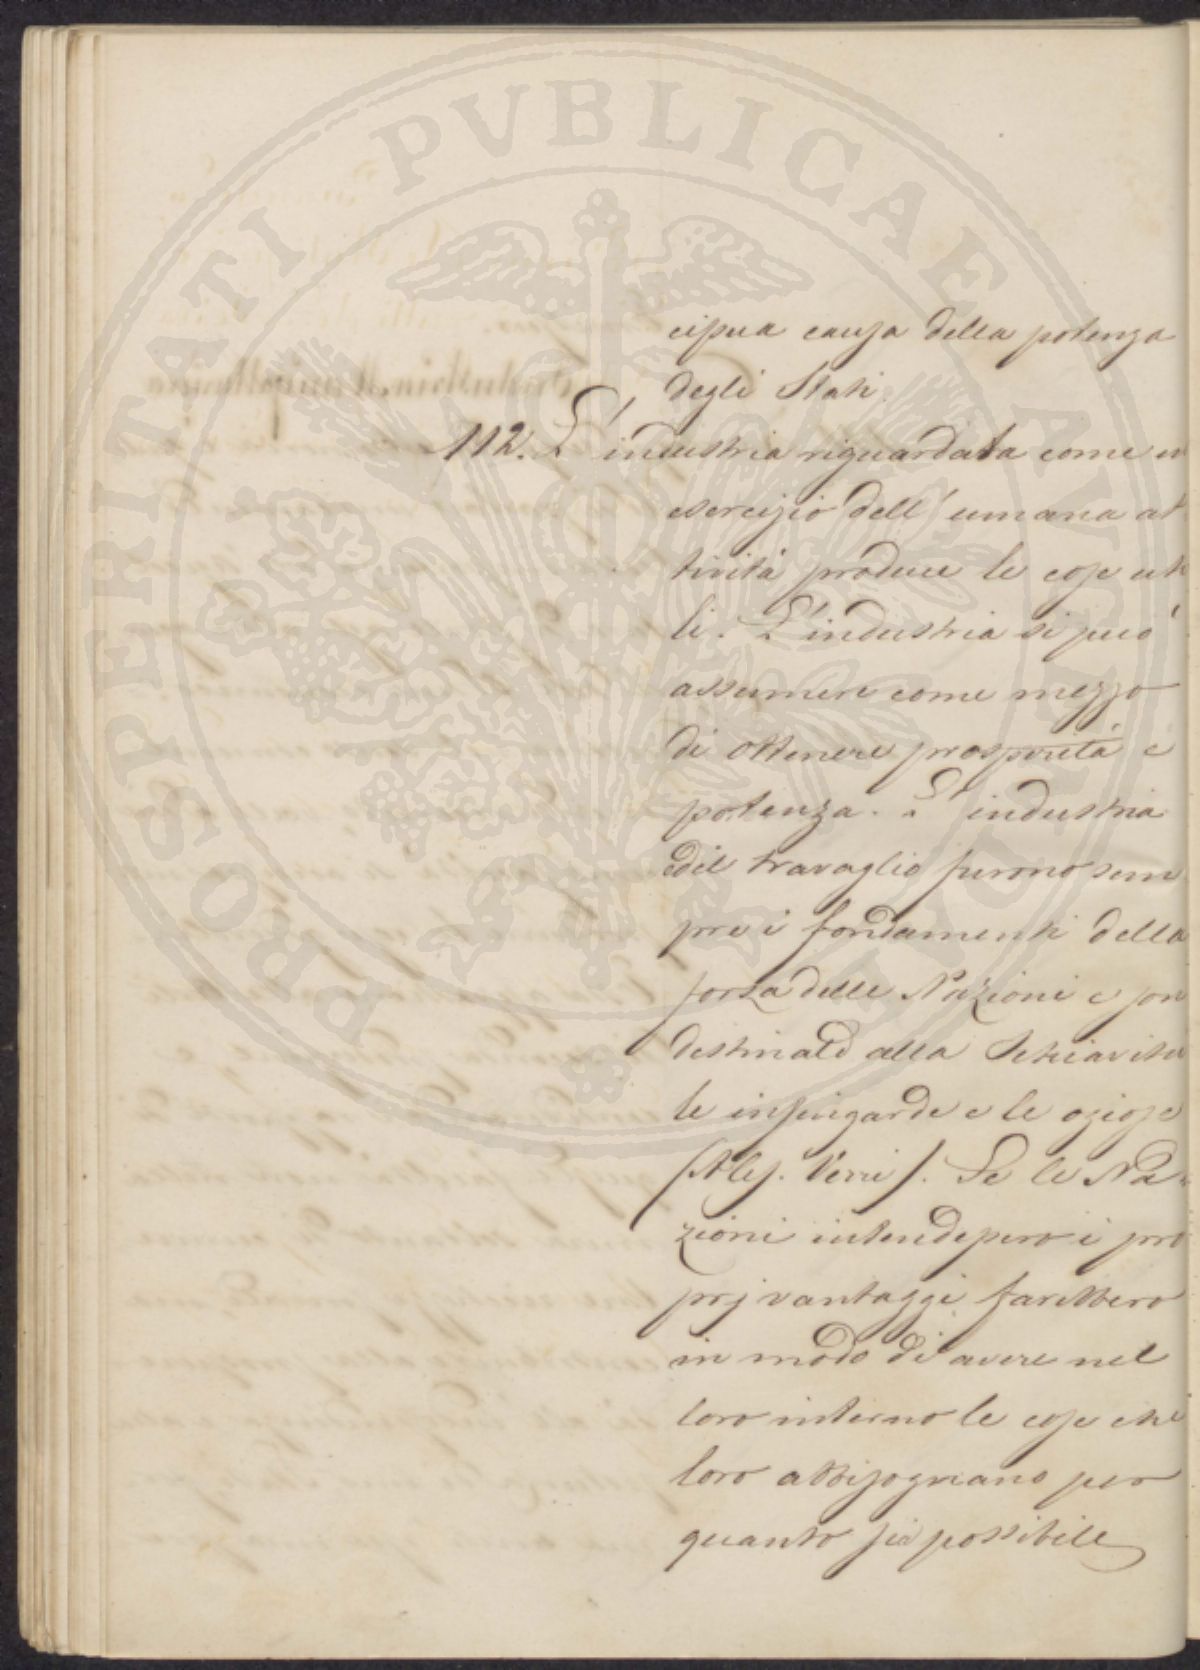 PROSPERITATI PVBLICAE AVGENDAE
cipua causa della potenza
degli Stati.
112. L'industria riguardata come un
esercizio dell'umana at
tività produce le cose uti
li. L'industria si può
assumere come mezzo
di ottenere prosperità e
potenza. L'industria
ed il travaglio furono sem
pre i fondamenti della
forza delle Nazioni e son
destinate alla Schiavitù
le infingarde e le oziose
(Ales. Verri). Se le Na-
zioni intendessero i pro
prj vantaggi farebbero
in modo di avere nel
loro interno le cose che
loro abbisognano per
quanto sia possibile